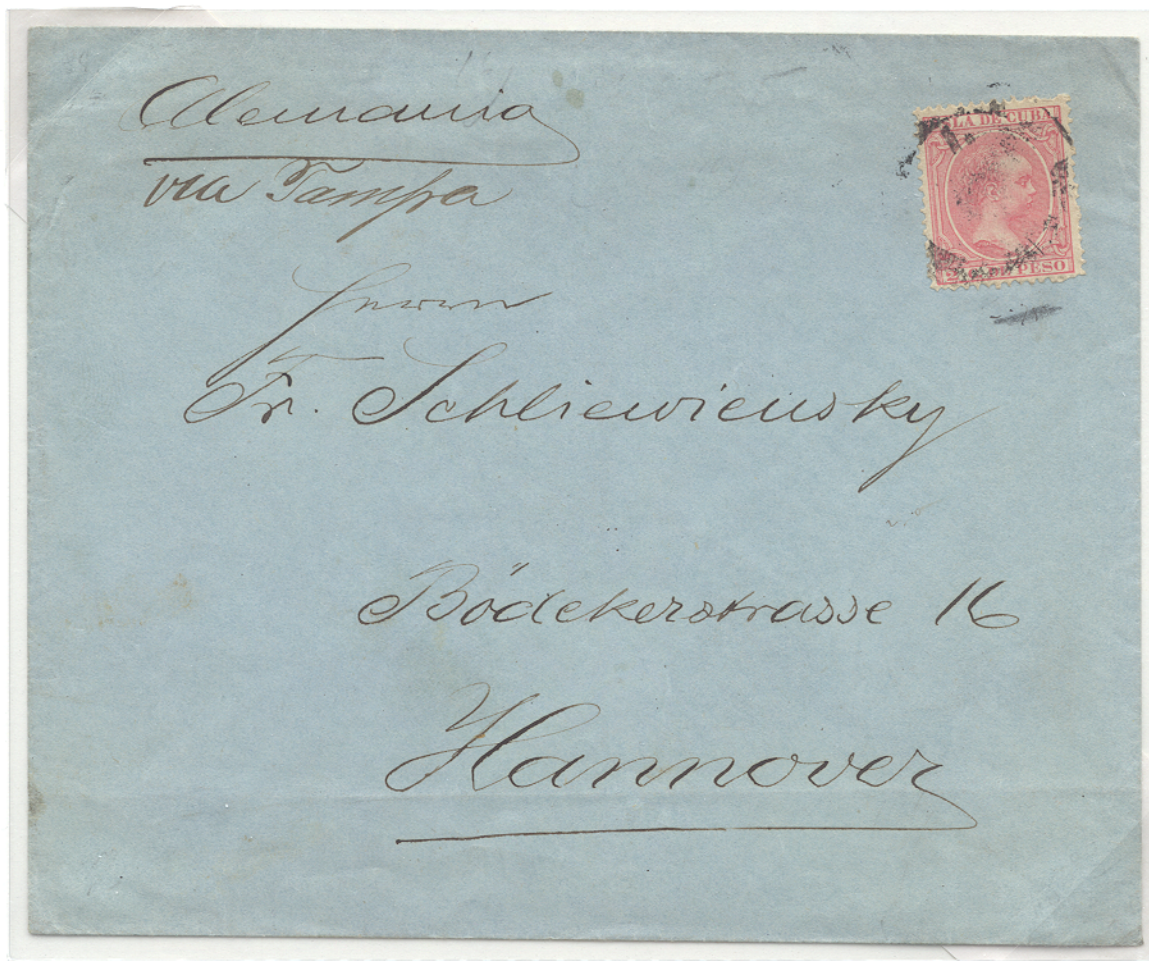 Alemania
via Tampa
LA DE CUBA
PESO
Herrn
Fr. Schliewiensky
Bödekerstrasse 16
Hannover